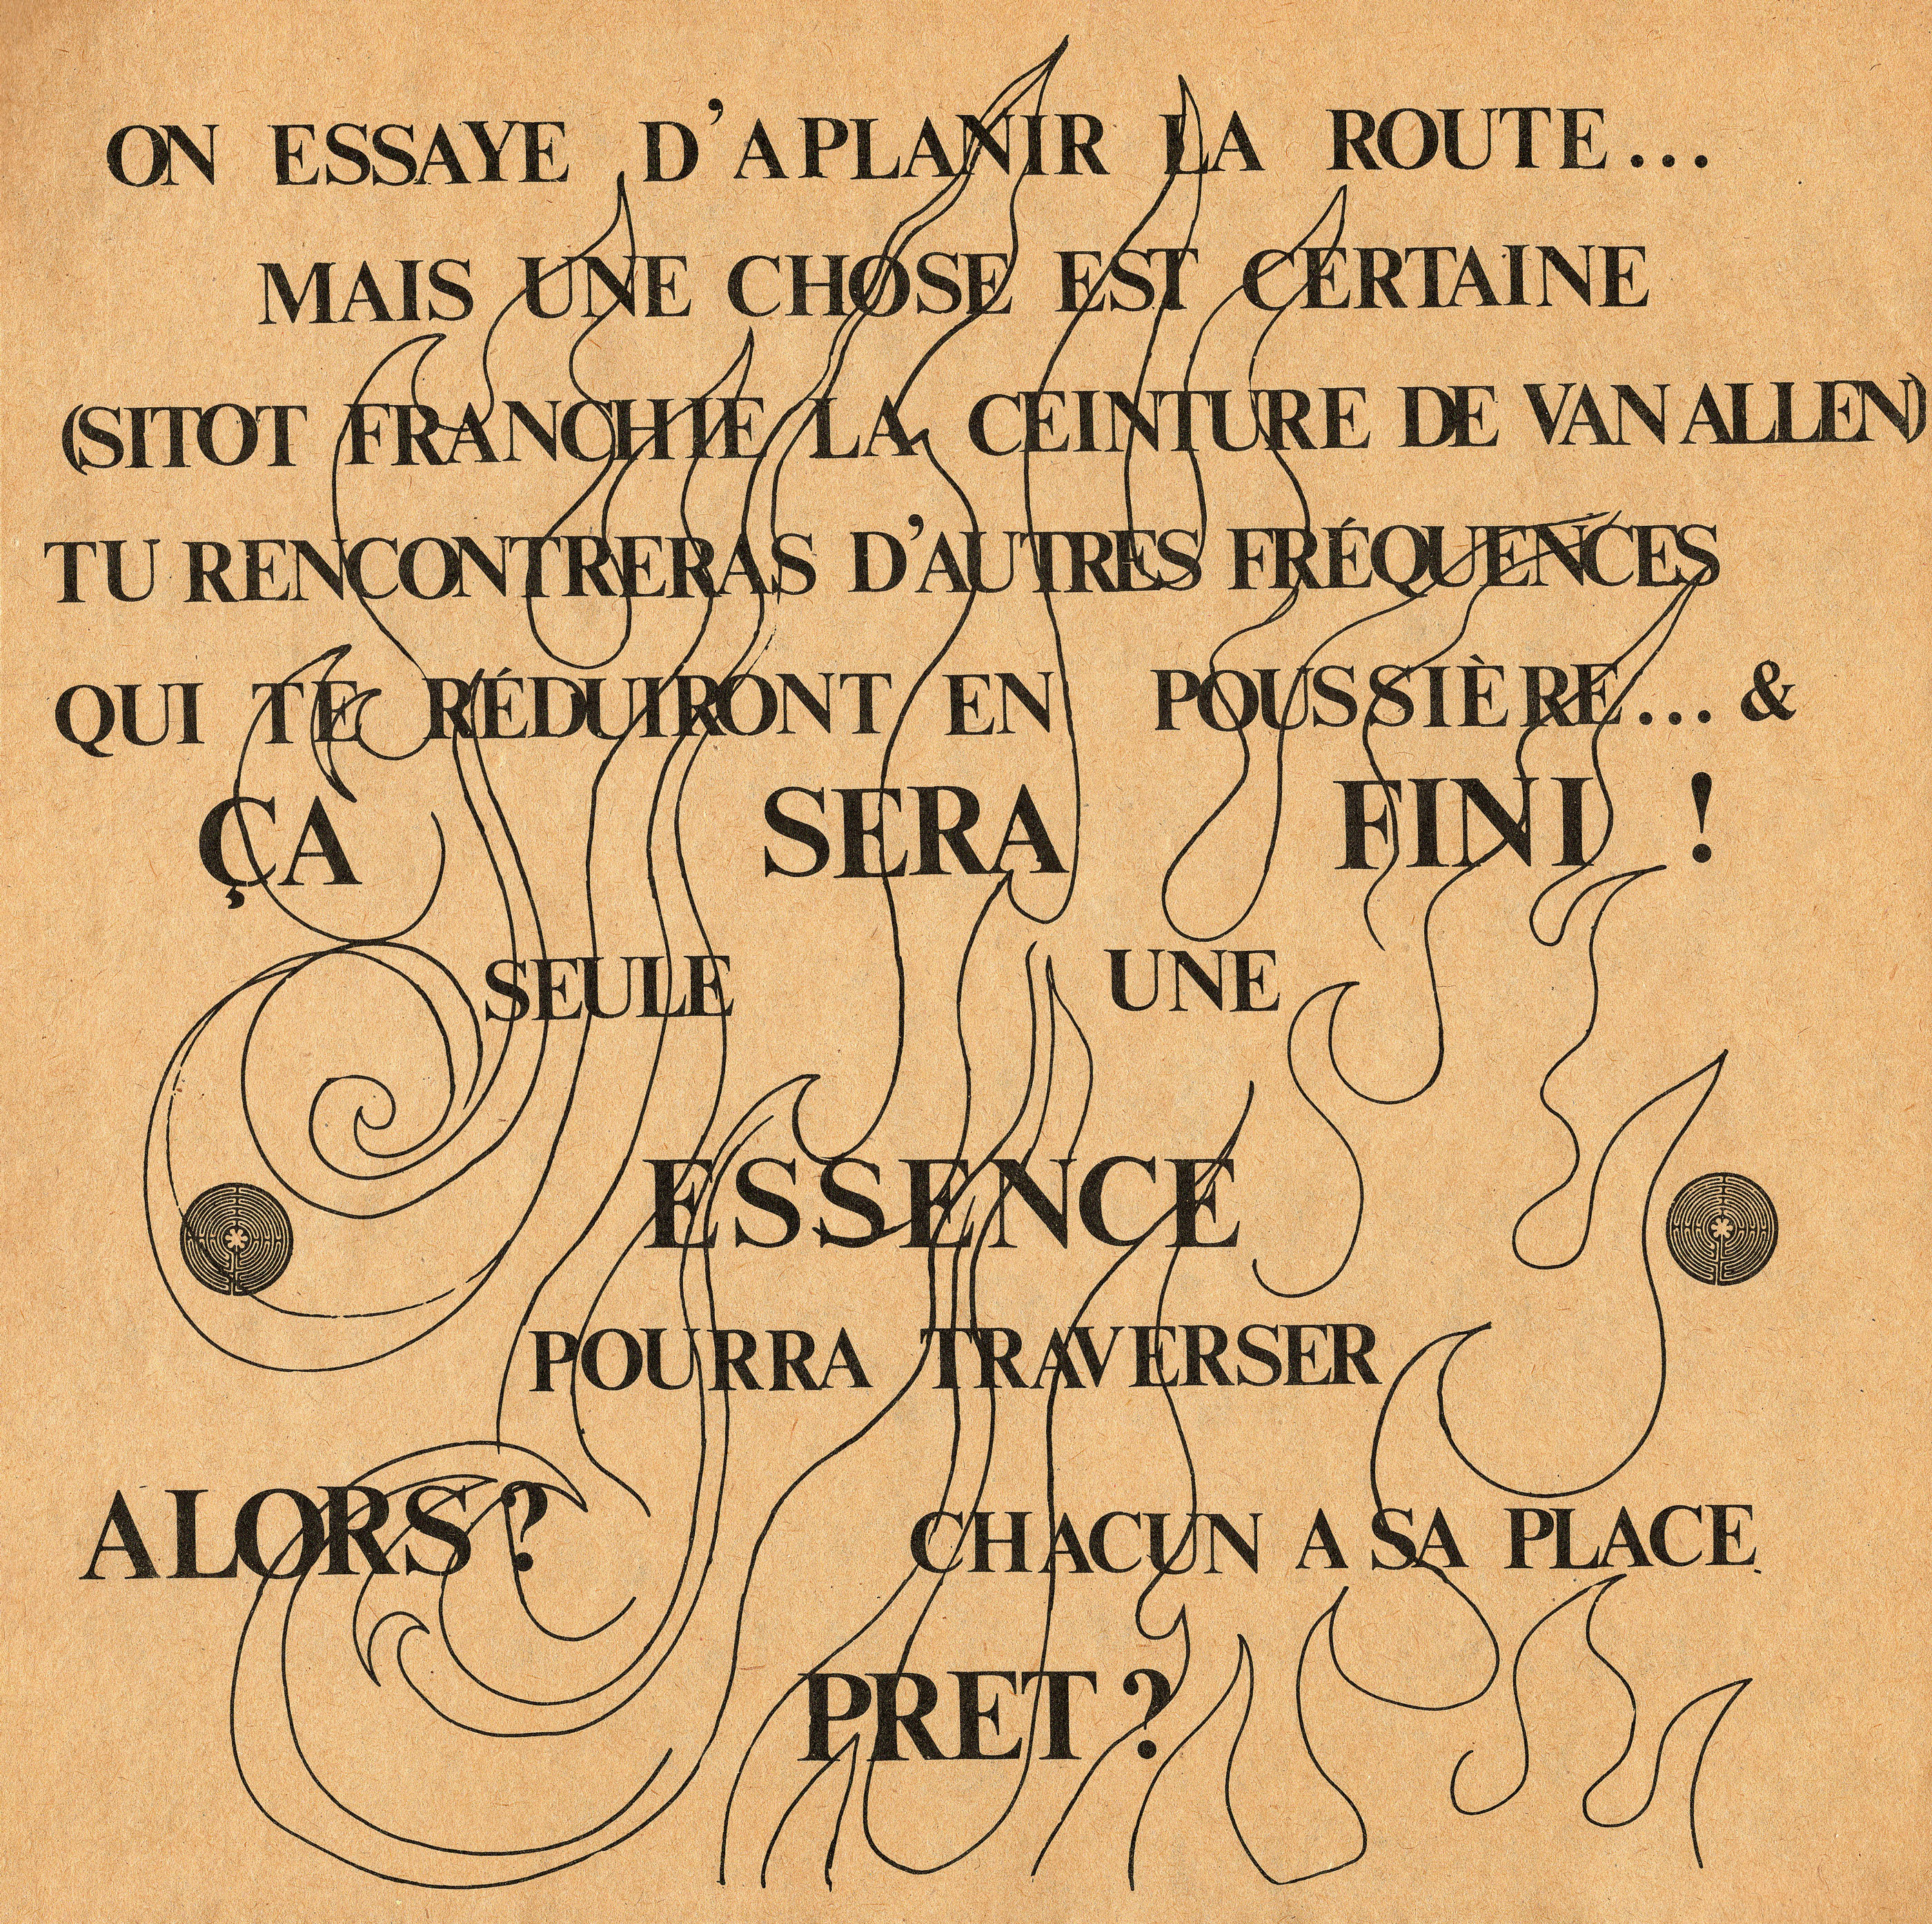 ON ESSAYE D'APLANIR LA ROUTE...
MAIS UNE CHOSE EST CERTAINE
(SITOT FRANCHIE LA CEINTURE DE VAN ALLEN)
TU RENCONTRERAS D'AUTRES FRÉQUENCES
QUI TE RÉDUIRONT EN POUSSIÈRE... &
ÇA SERA FINI !
SEULE UNE
ESSENCE
POURRA TRAVERSER
ALORS ? CHACUN A SA PLACE.
PRET ?